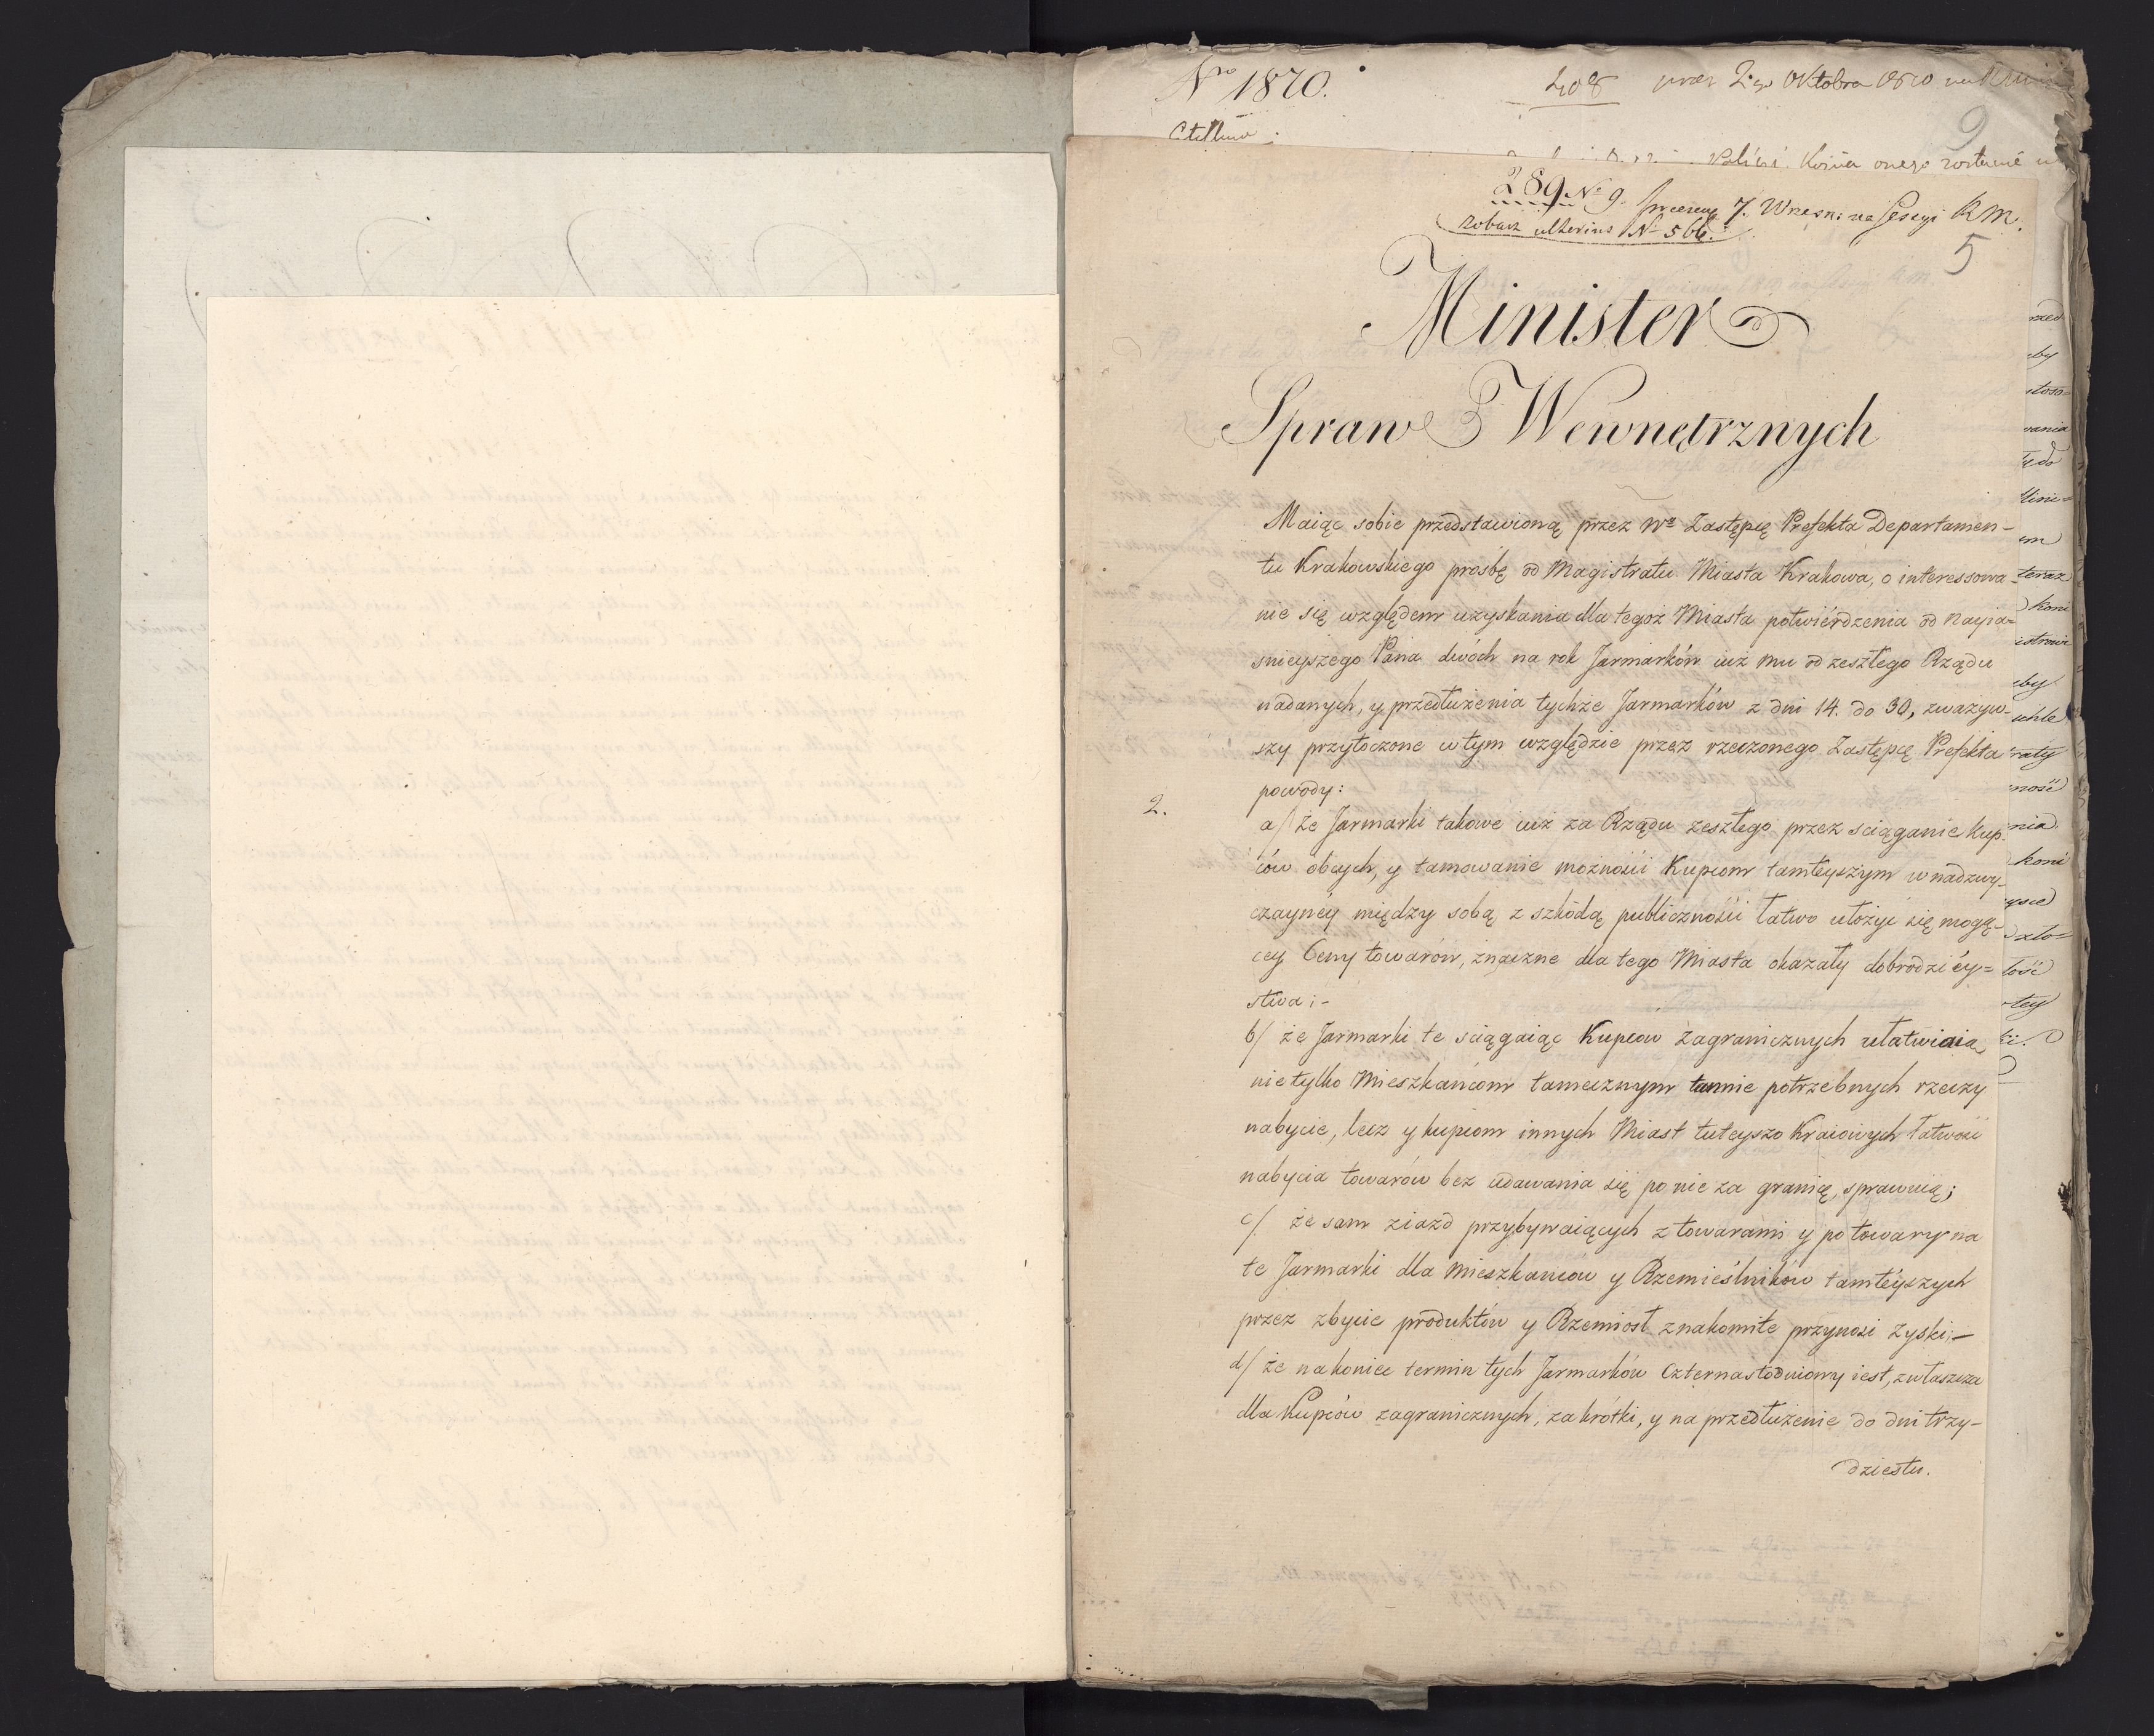 No 1870.
208 przez 2go Oktobra 1810 na
9
onego
289 No 9. 7. Wrześn: na Sessyi R M.
zobacz ulterius No 566.
5
Minister
Spraw Wewnętrznych
Maiąc sobie przedstawioną przez Wo Zastępcę Prefekta Departamen-
tu Krakowskiego prośbę od Magistratu Miasta Krakowa, o interessowa-
nie się względem uzyskania dla tegoż Miasta potwiérdzenia od Nayia=
śnieyszego Pana dwóch na rok Jarmarków iuż mu od zeszłego Rządu
nadanych, y przedłużenia tychże Jarmarków z dni 14. do 30, zważyw-
szy przytoczone w tym względzie przez rzeczonego Zastępcę Prefekta
powody:
2.
a/ że Jarmarki takowe iuż za Rządu zeszłego przez sciąganie Kup-
ców obcych, y tamowanie możności Kupcom tamteyszym w nadzwy-
czaynéy między sobą z szkodą publiczności łatwo ułożyć się mogą-
cey Ceny towarów, znaczne dla tego Miasta okazały dobrodziéy=
stwa; -
b/ że Jarmarki te sciągaiąc Kupców Zagranicznych ułatwiaią
nie tylko Mieszkańcom tamecznym tannie potrzebnych rzeczy
nabycie, lecz y kupcom innych Miast tuteyszo Kraiowych łatwość
nabycia towarów bez udawania się po nie za granicę, sprawuią;
c/ że sam ziazd przybywaiących z towarami y po towary na
te Jarmarki dla Mieszkańców y Rzemieślników tamtéyszych
przez zbycie produktów y Rzemiosł znakomite przynosi zyski; -
d/ że nakoniec termin tych Jarmarków Czternastodniowy iest, zwłaszcza
dla Kupców zagranicznych, za krótki, y na przedłużenie do dni trzy-
dziestu.